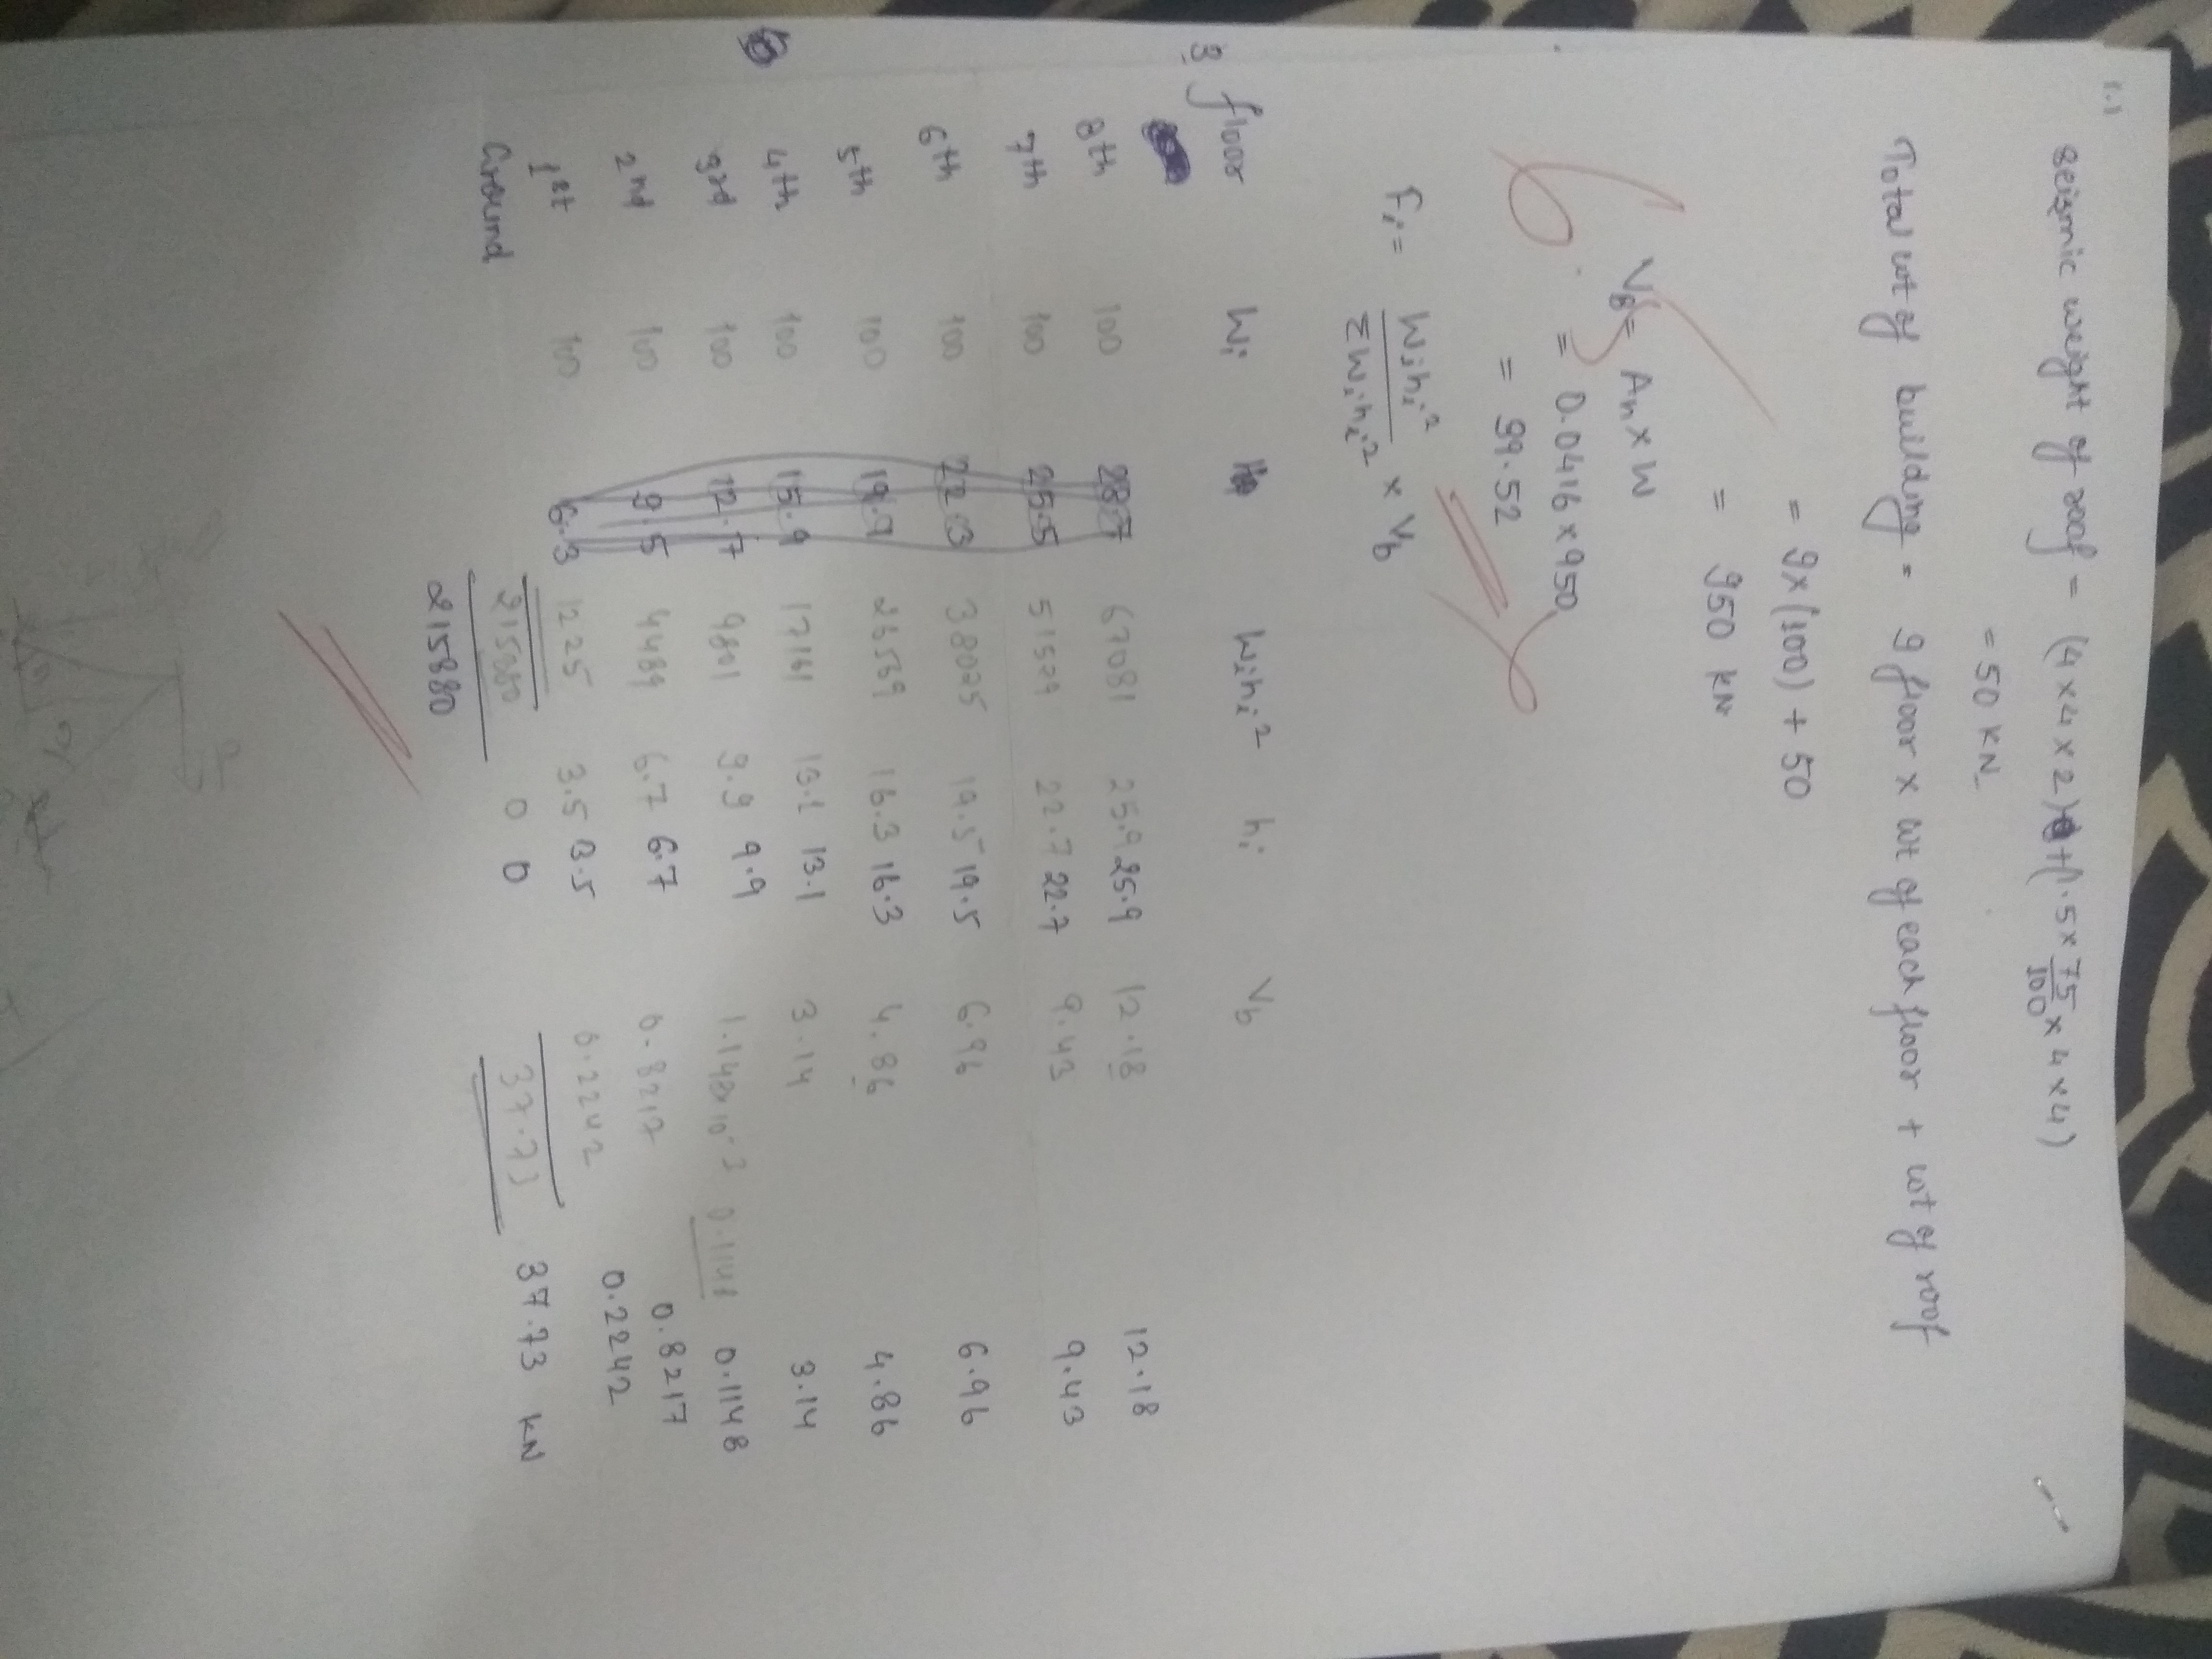 1.1
seismic weight of roof = (4 x 4 x 2) + (1.5 x 75/100 x 4 x 4)
= 50 KN
Total wt of building = 9 floor x wt of each floor + wt of roof
= 9x(100) + 50
= 950 KN
VB = An x W
= 0.0416 x 950
= 39.52
Fi = Wihi² / ΣWihi² x Vb
3 floor Wi Wihi² hi Vb
8th 100 28.7 67081 25.9 25.9 12.18 12.18
7th 100 25.5 51529 22.7 22.7 9.43 9.43
6th 100 22.3 38025 19.5 19.5 6.96 6.96
5th 100 19.1 26569 16.3 16.3 4.86 4.86
4th 100 15.9 17161 13.1 13.1 3.14 3.14
3rd 100 12.7 9801 9.9 9.9 0.1148 0.1148
2nd 100 9.5 4489 6.7 6.7 0.8217 0.8217
1st 100 6.3 1225 3.5 3.5 0.2242 0.2242
Ground 215880 0 0 37.73 37.73 KN
215880